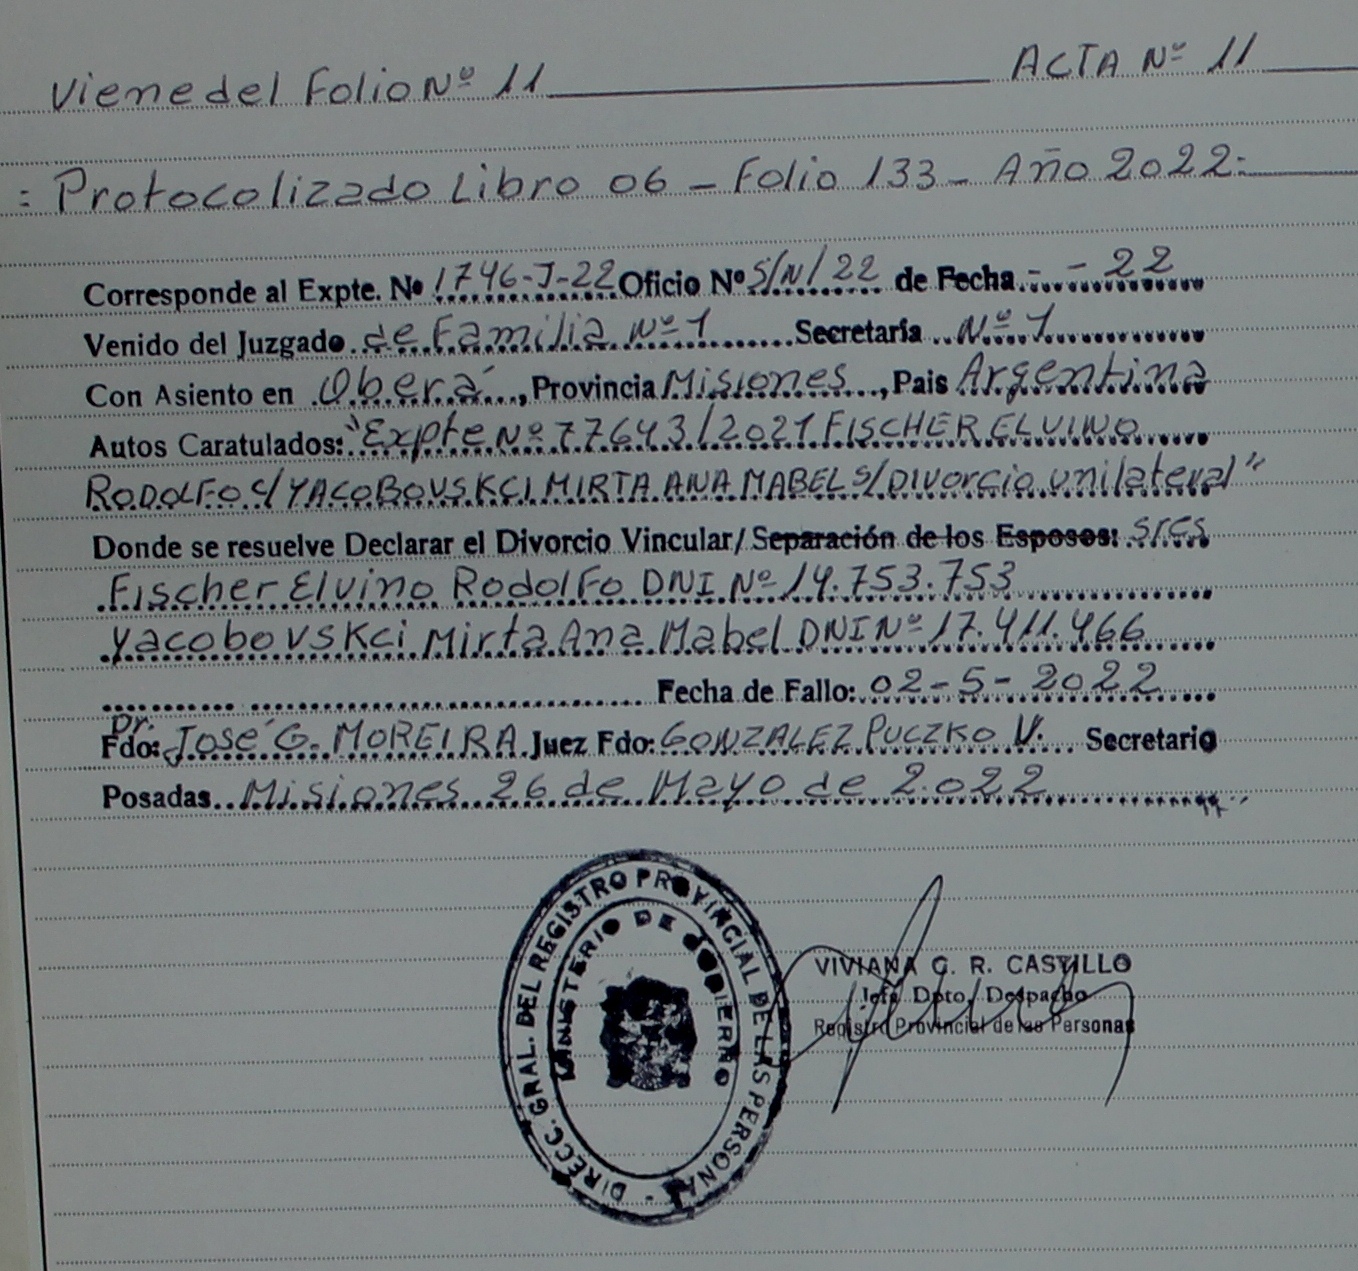 Viene del Folio Nº 11 ACTA Nº 11
: Protocolizado Libro 06 - Folio 133 - Año 2022:
Corresponde al Expte. Nº 1746-J-22 Oficio Nº S/N/22 de Fecha - - 22
Venido del Juzgado de Familia Nº 1 Secretaría Nº 1
Con Asiento en Oberá, Provincia Misiones, Pais Argentina
Autos Caratulados: "Expte Nº 77643/2021 FISCHER ELVINO
RODOLFO C/ YACOBOVSKCI MIRTA ANA MABEL S/ Divorcio unilateral"
Donde se resuelve Declarar el Divorcio Vincular/ Separación de los Esposos: Sres
Fischer Elvino Rodolfo DNI Nº 14.753.753
Yacobovskci Mirta Ana Mabel DNI Nº 17.411.466
Fecha de Fallo: 02-5-2022
Dr.
Fdo: José G. MOREIRA Juez Fdo: GONZALEZ PUCZKO V. Secretario
Posadas Misiones 26 de Mayo de 2.022
DIRECC. GRAL. DEL REGISTRO PROVINCIAL DE LAS PERSONAS -
MINISTERIO DE GOBIERNO
VIVIANA G. R. CASTILLO
Jefa Dpto. Despacho
Registro Provincial de las Personas